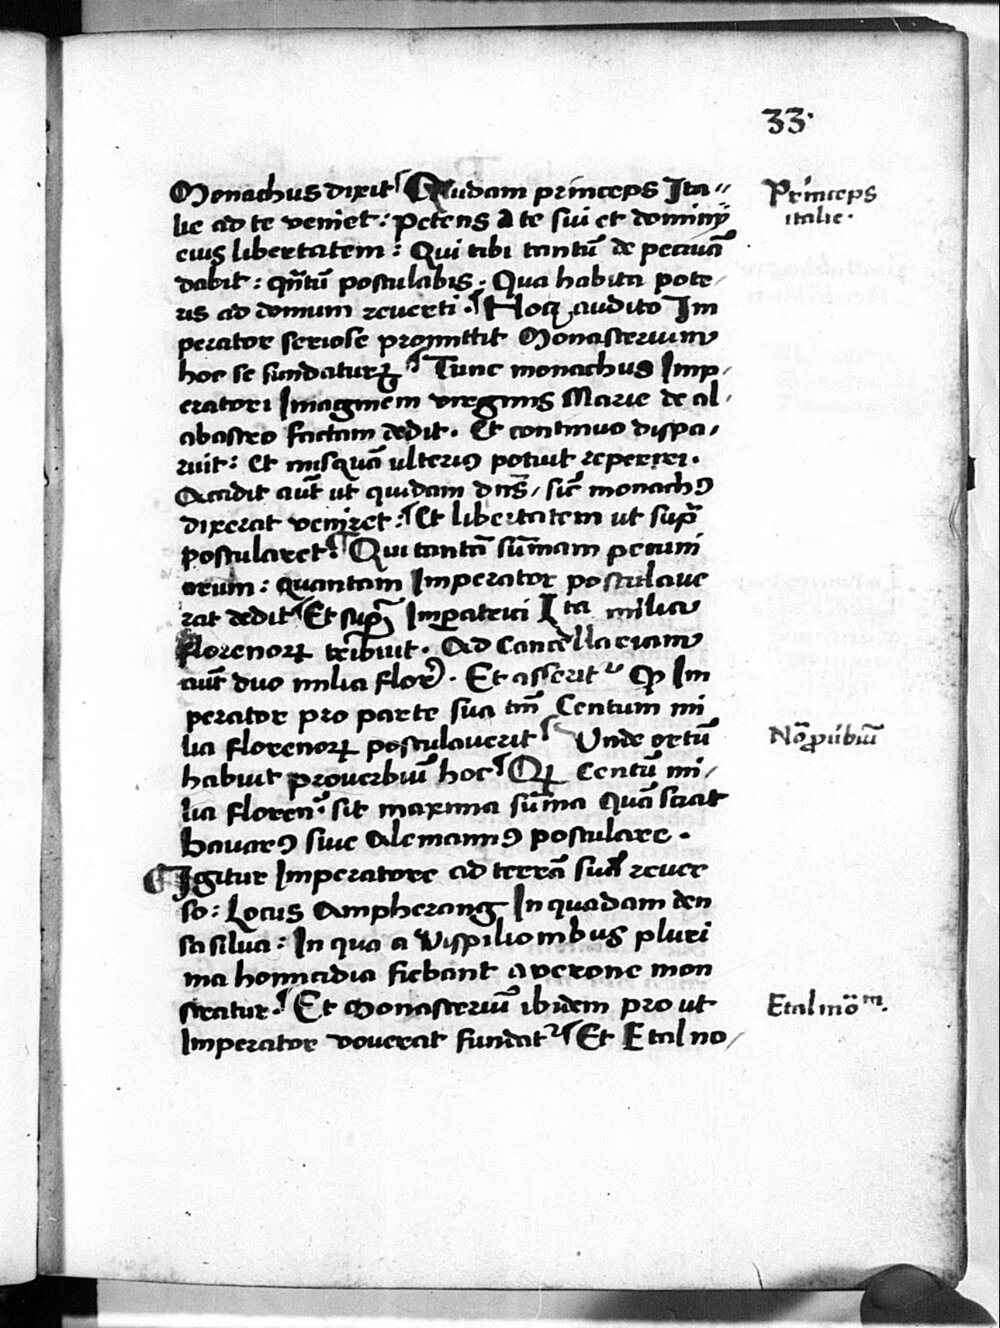 33.
Monachus dixit Quidam princeps Ita〃
lie ad te veniet: petens a te sui et dominij
eius libertatem: Qui tibi tantū de pecuniā
dabit: qn̄tū postulabis. Qua habita pote/
ris ad domum reverti. Hocq audito Im
perator seriose promittit Monasterium
hoc se fundaturꝝ Tunc monachus Imp/
eratori Imaginem virginis Marie de al/
abastro factam dedit. Et continuo dispa/
ruit: Et nusquā ulteriꝰ potuit reperiri.
Accidit aut̄ ut quidam dn̄s / sic̄ monachꝰ
dixerat veniret: Et libertatem ut sup̄
postularet. Qui tantā sum̄am pecuni
arum: quantam Imperator postulave
rat dedit Et sup Imp̄atrici I ta milia
florenoꝝ tribuit. Ad Cancellariam
aut̄ duo milia flor̄. Et asserit᷑ ꝙ Im
perator pro parte sua tm̄ Centum mi
lia florenoꝝ postulaverit Unde ortū
habuit proverbiū hoc Centū mi/
lia floren̄ sit maxima sum̄a quā sciat
bavarꝰ sive Alemannꝰ postulare.
Igitur Imperatore ad terrā suā rever
so: Locus Ampherang In quadam den
sa silva: In qua a vispilionibus pluri
ma homicidia fiebant a verone mon
stratur. Et Monasteriū ibidem pro ut
Imperator voverat fundat᷑ Et Etal no/
Princeps
italie.
No ꝓv̄biū
Etal mōm.